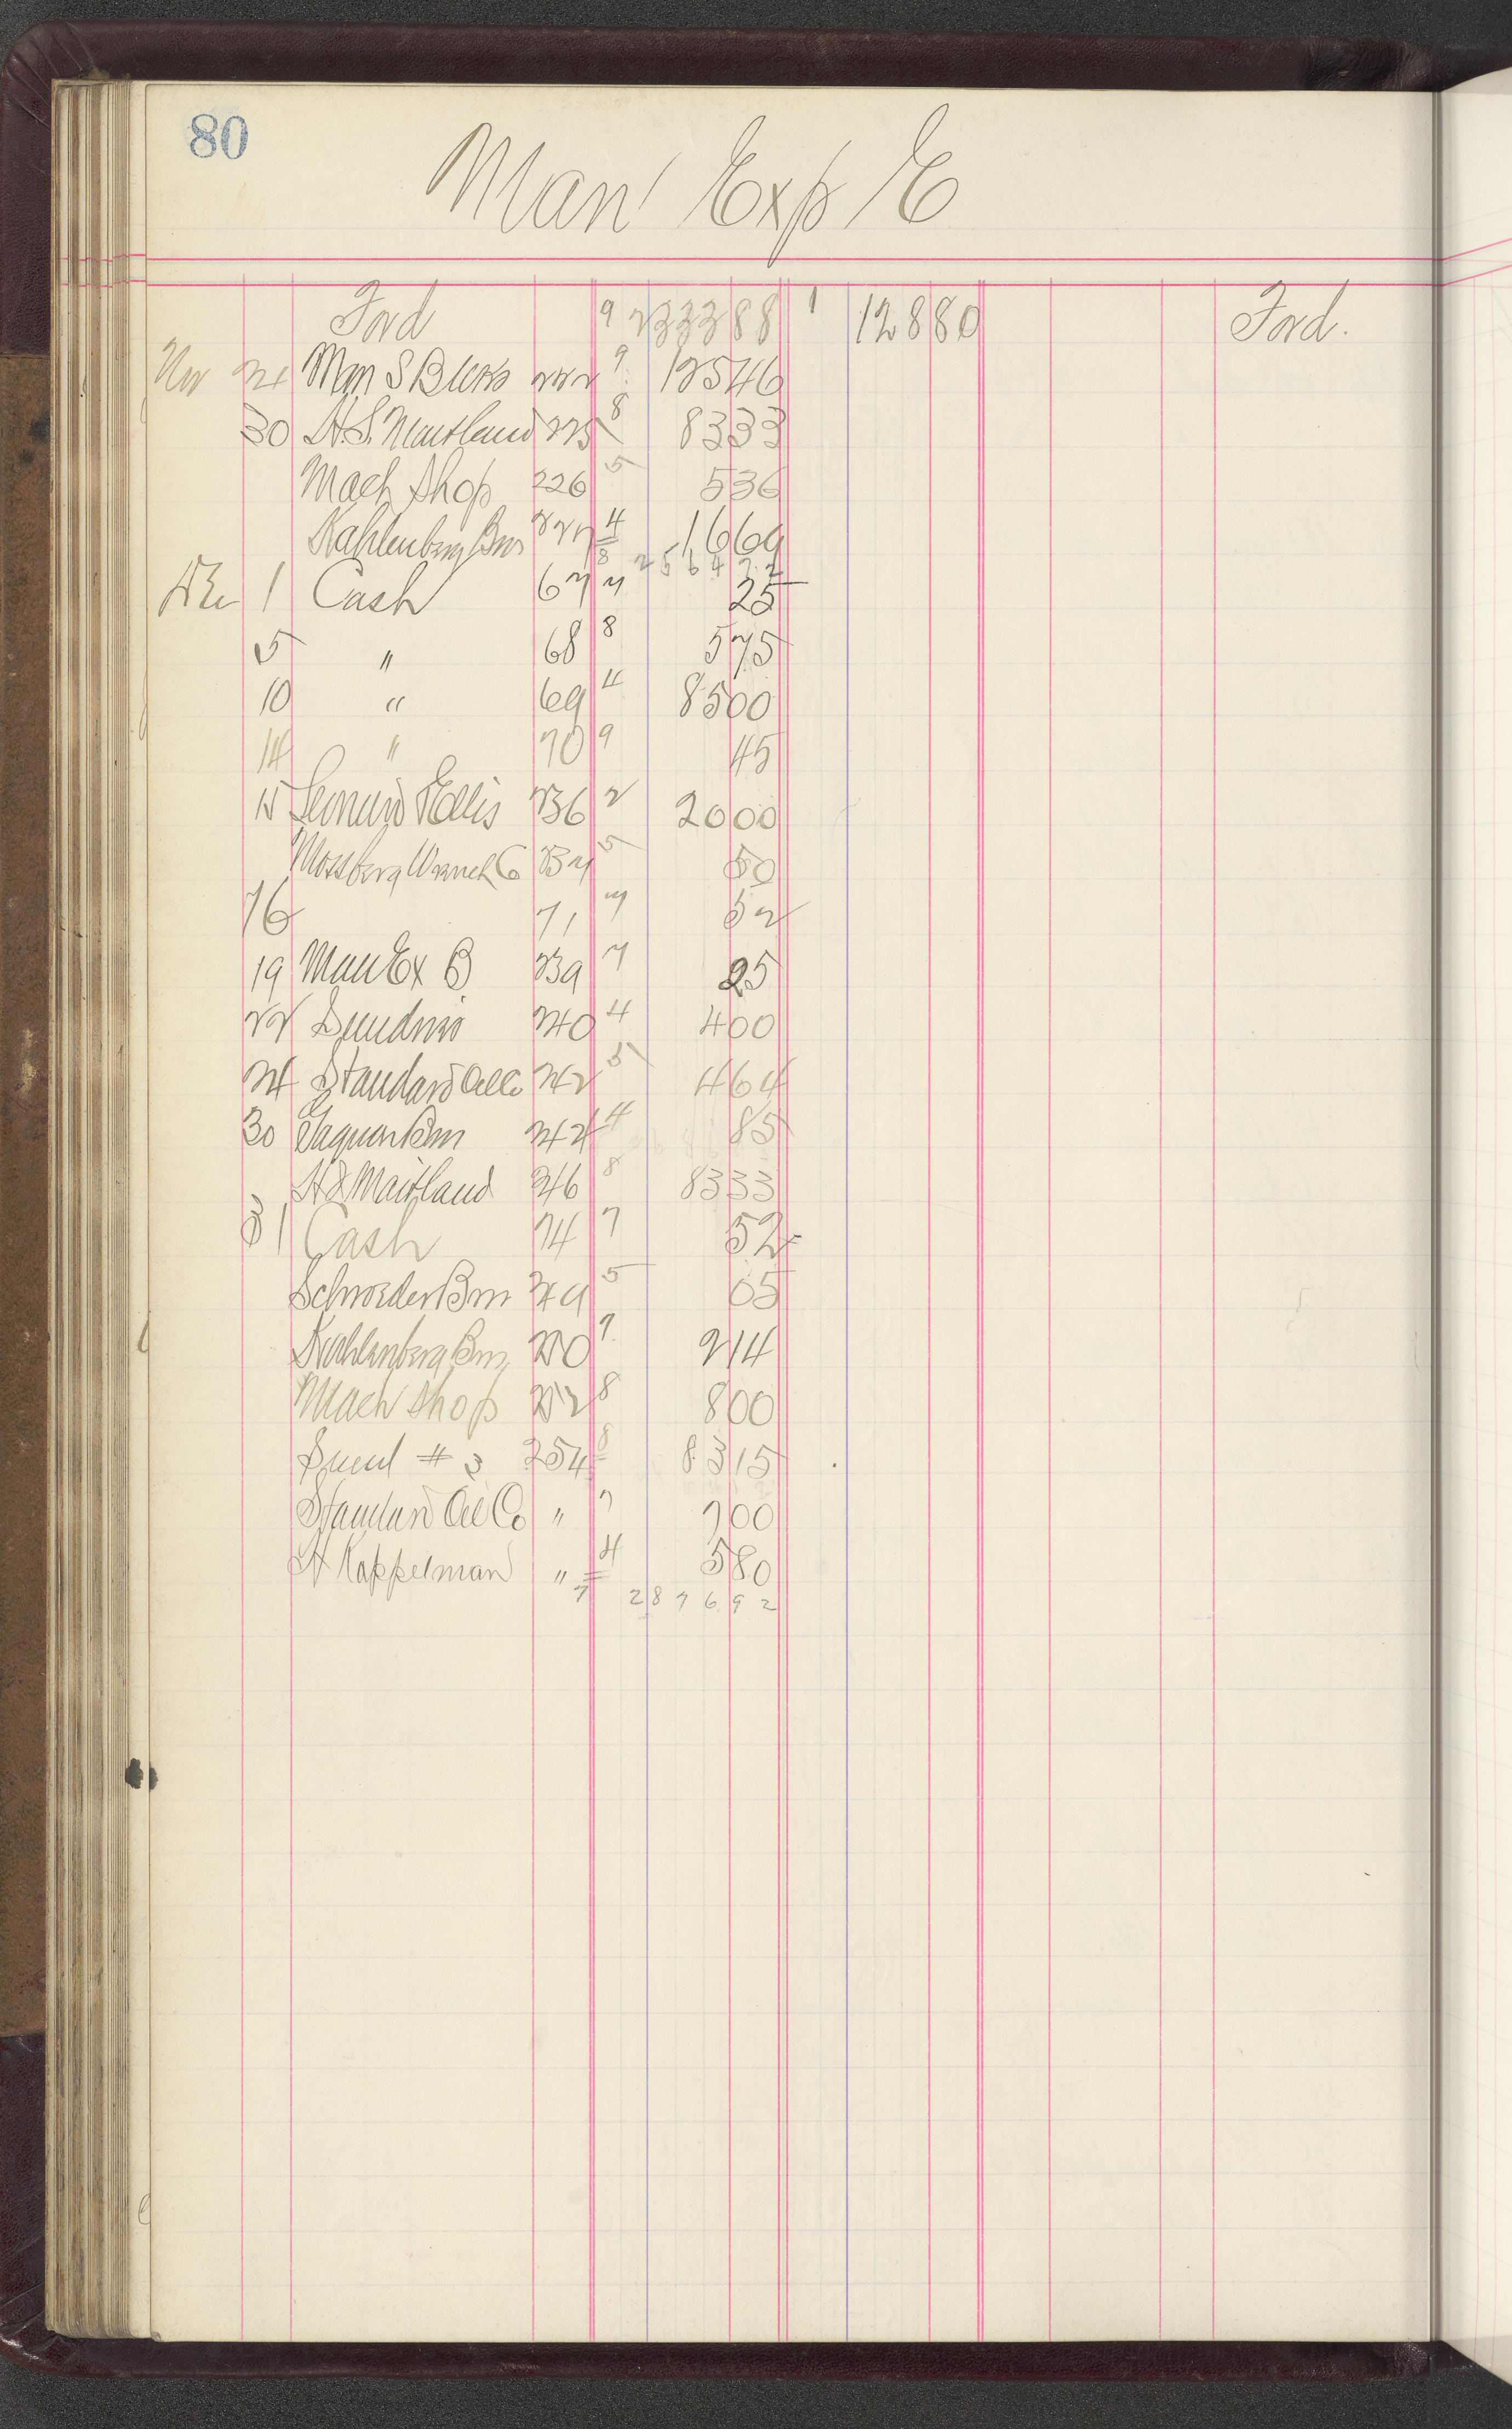 80
Man' Exp E
Ford 9 233388 1 12880 Ford.
Nov 24 Man S B 222 9 12546
30 H.S. Maitland 225 8 8333
Mach Shop 226 5 536
Kahlenberg Bros 227 4 1669
8 256472
Dec 1 Cash 67 7 25
5 " 68 8 575
10 " 69 4 8500
14 " 70 9 45
15 Ellis 236 2 2000
Mossberg Wrench Co 237 5 50
16 71 7 52
19 Man Ex B 239 7 25
22 Sundries 240 4 400
24 Standard Oil Co 242 5 464
30 Bros 244 4 85
H S Maitland 246 8 8333
31 Cash 74 7 52
Schroeder Bros 249 5 05
Kahlenberg Bros 250 7 214
Mach Shop 252 8 800
# 3 254 8 8315
Standard Oil Co " 7 700
H Kappelman " 4 580
7 287692